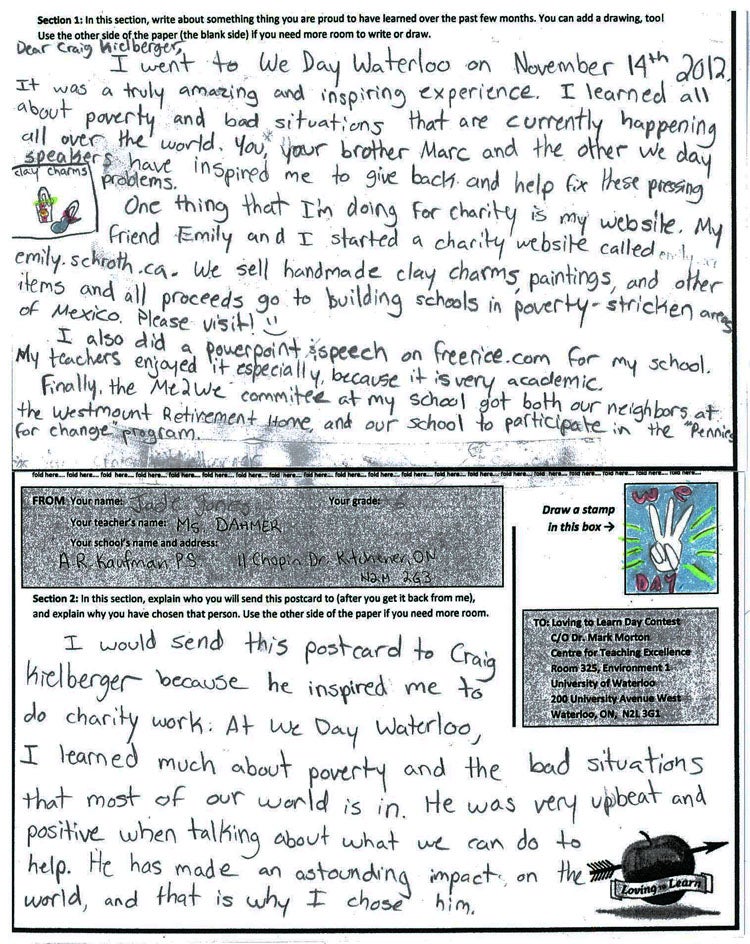 Section 1: In this section, write about something thing you are proud to have learned over the past few months. You can add a drawing, too!
Use the other side of the paper (the blank side) if you need more room to write or draw.
Dear Craig Kielberger,
I went to We Day Waterloo on November 14th 2012.
It was a truly amazing and inspiring experience. I learned all
about poverty and bad situations that are currently happening
all over the world. You, your brother Marc and the other we day
speakers have inspired me to give back and help fix these pressing
problems.
clay charms
One thing that I'm doing for charity is my website. My
friend Emily and I started a charity website called
emily.schroth.ca. We sell handmade clay charms, paintings, and other
items and all proceeds go to building schools in poverty-stricken areas
of Mexico. Please visit!
I also did a powerpoint & speech on freerice.com for my school.
My teachers enjoyed it especially, because it is very academic.
Finally, the Me2We commitee at my school got both our neighbors at
the Westmount Retirement Home, and our school to participate in the "Pennies
for change" program.
fold here... fold here... fold here... fold here... fold here... fold here... fold here... fold here... fold here... fold here... fold here... fold here... fold here... fold here... fold here... fold here... fold here... fold here...
FROM Your name: Jade Jones Your grade: 6
Your teacher's name: Ms DAHMER
Your school's name and address:
A.R. Kaufman P.S. 11 Chopin Dr. Kitchener, ON
N2M 2G3
Draw a stamp
in this box →
WE
DAY
Section 2: In this section, explain who you will send this postcard to (after you get it back from me),
and explain why you have chosen that person. Use the other side of the paper if you need more room.
TO: Loving to Learn Day Contest
C/O Dr. Mark Morton
Centre for Teaching Excellence
Room 325, Environment 1
University of Waterloo
200 University Avenue West
Waterloo, ON, N2L 3G1
I would send this postcard to Craig
Kielberger because he inspired me to
do charity work. At We Day Waterloo,
I learned much about poverty and the bad situations
that most of our world is in. He was very upbeat and
positive when talking about what we can do to
help. He has made an astounding impact on the
world, and that is why I chose him.
Loving to Learn